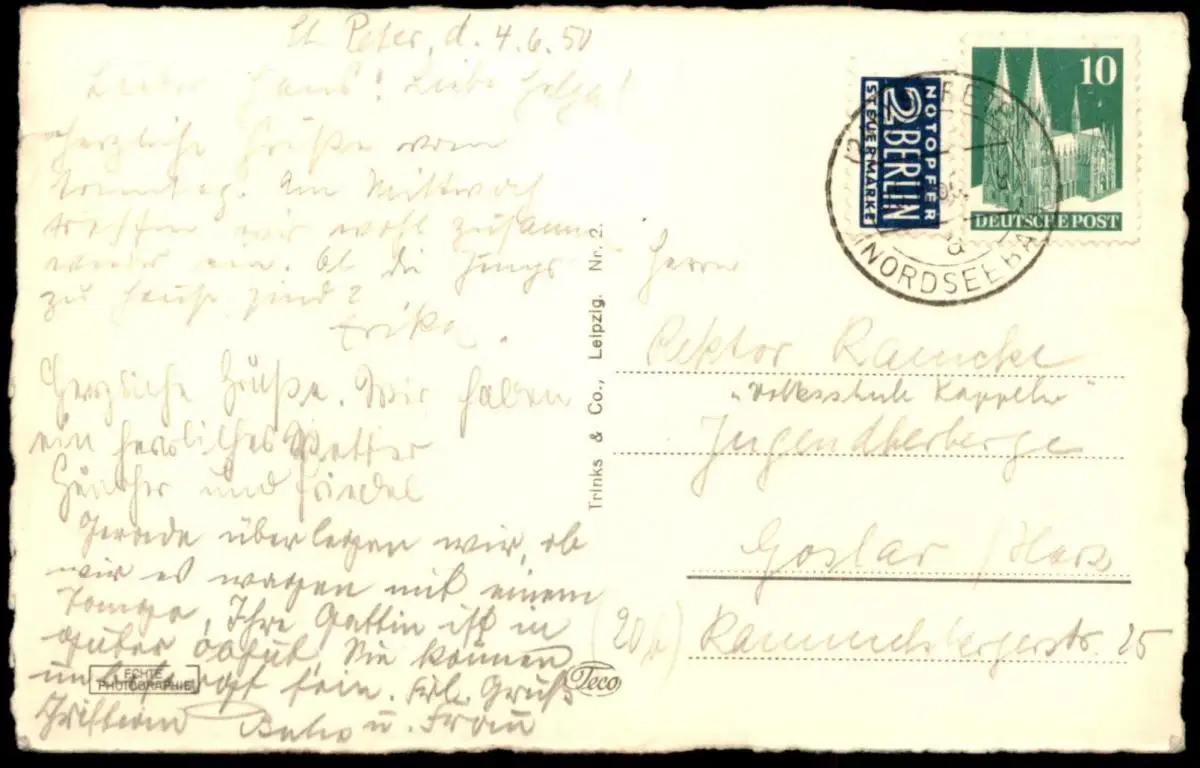 St. Peter, d. 4.6.50
Lieber Hans! Liebe Helga!
Herzliche Grüße vom
Sonntag. Am Mittwoch
treffen wir wohl zusammen
wieder ein. Ob die Jungs
zu Hause sind?
Erika.
Herzliche Grüße. Wir haben
ein herrliches Wetter
Günther und Friedel
Gerade überlegen wir, ob
wir es wagen mit einem
Ihre Gattin ist in
guter Obhut, Sie können
unbesorgt sein. Frl. Gruß
u. Frau
ECHTE
PHOTOGRAPHIE
Trinks & Co., Leipzig. Nr. 2.
Teco
NOTOPFER
2 BERLIN
STEUERMARKE
10
DEUTSCHE POST
(NORDSEEBA
Herrn
Rektor Ramcke
„Volksschule Kappeln"
Jugendherberge
Goslar / Harz
(20b) Rammelsbergerstr. 25